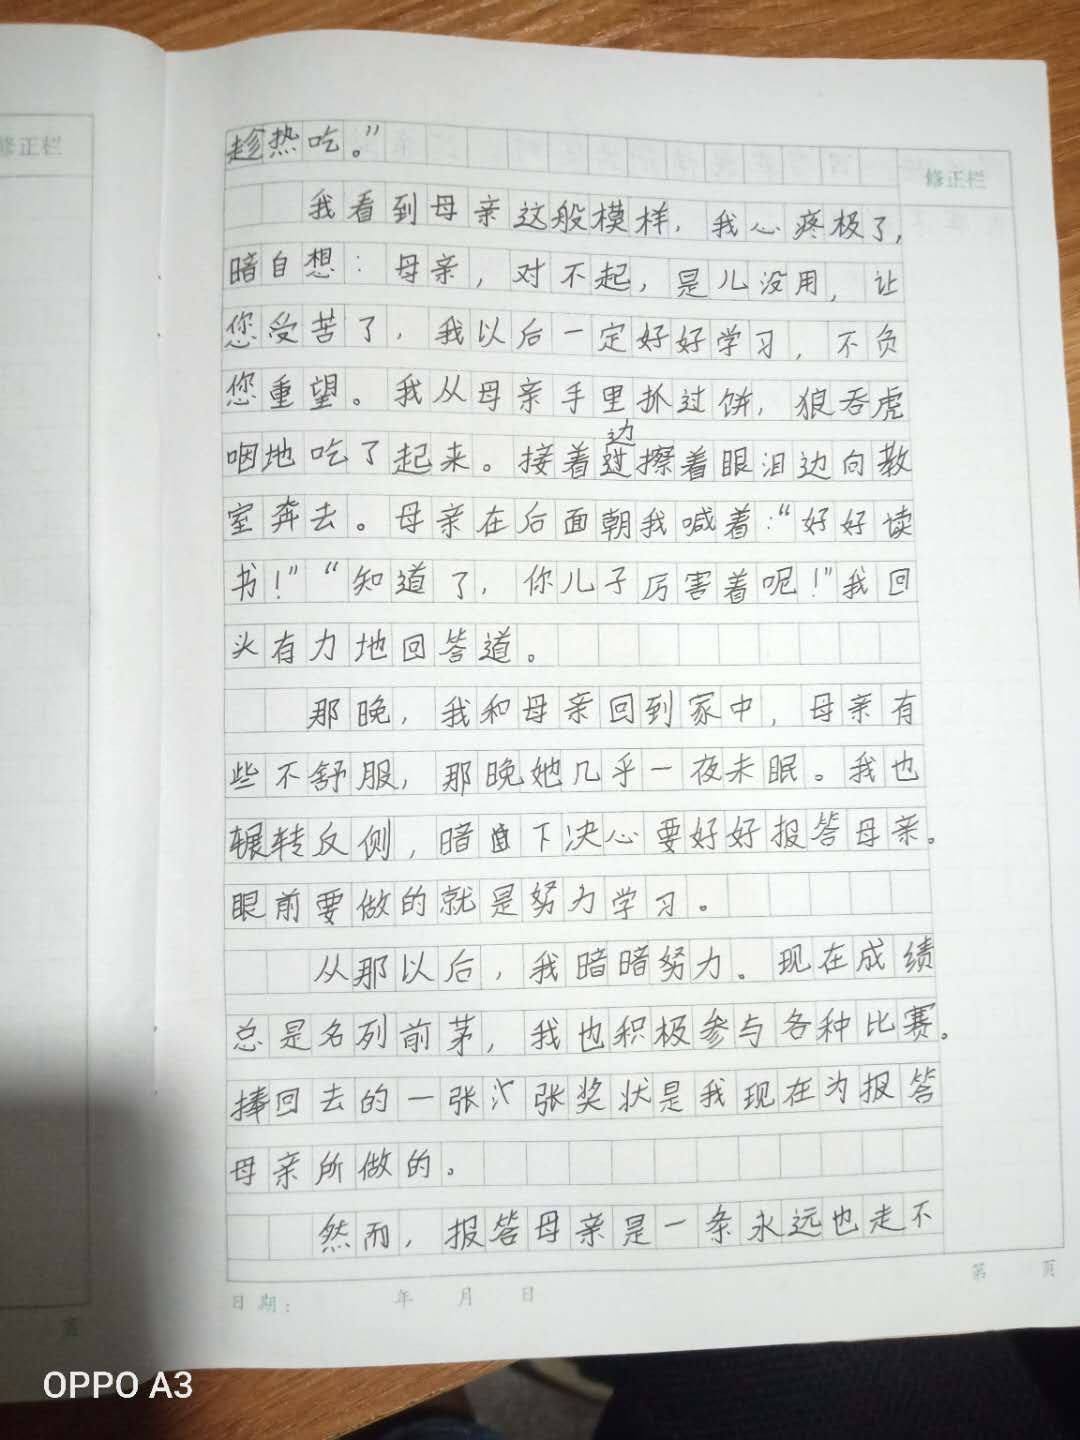 修正栏
修正栏
趁热吃。”
我看到母亲这般模样，我心疼极了，
暗自想：母亲，对不起，是儿没用，让
您受苦了，我以后一定好好学习，不负
您重望。我从母亲手里抓过饼，狼吞虎
咽地吃了起来。接着边擦着眼泪边向教
室奔去。母亲在后面朝我喊着：“好好读
书！”“知道了，你儿子厉害着呢！”我回
头有力地回答道。
那晚，我和母亲回到家中，母亲有
些不舒服，那晚她几乎一夜未眠。我也
辗转反侧，暗自下决心要好好报答母亲。
眼前要做的就是努力学习。
从那以后，我暗暗努力。现在成绩
总是名列前茅，我也积极参与各种比赛。
捧回去的一张张奖状是我现在为报答
母亲所做的。
然而，报答母亲是一条永远也走不
第 页
日期： 年 月 日
页
OPPO A3